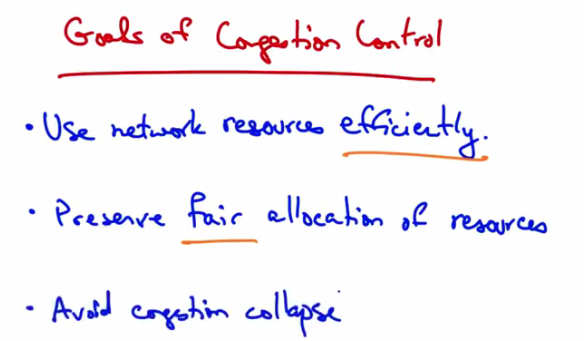 Goals of Congestion Control
• Use network resources efficiently.
• Preserve fair allocation of resources
• Avoid congestion collapse